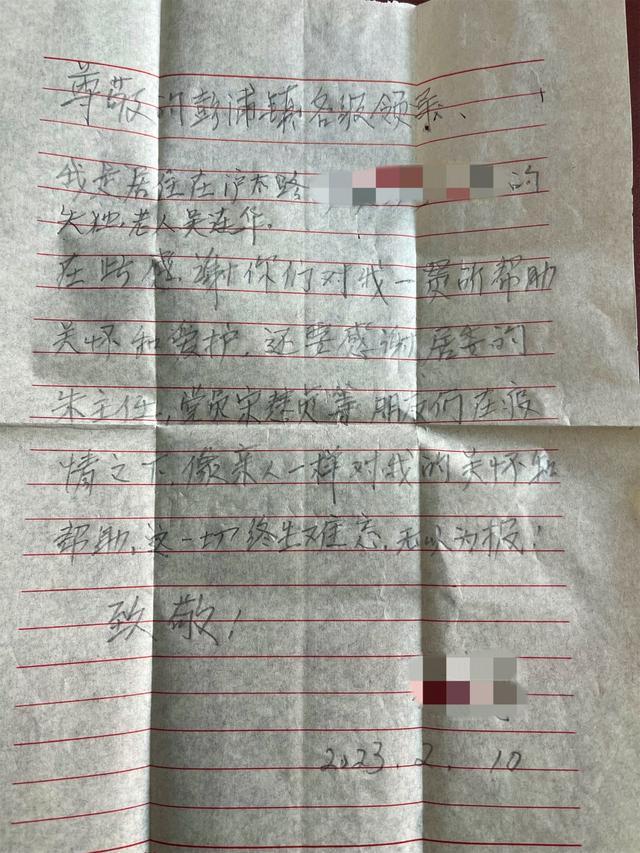 尊敬的彭浦镇各级领导、
我是居住在沪太路 的
失独老人吴连华。
在此感谢你们对我一贯所帮助
关怀和爱护，还要感谢居委的
朱主任，党员宋慈贞等朋友们在疫
情之下，像亲人一样对我的关怀和
帮助，这一切终生难忘，无以为报！
致敬！
2023.2.10